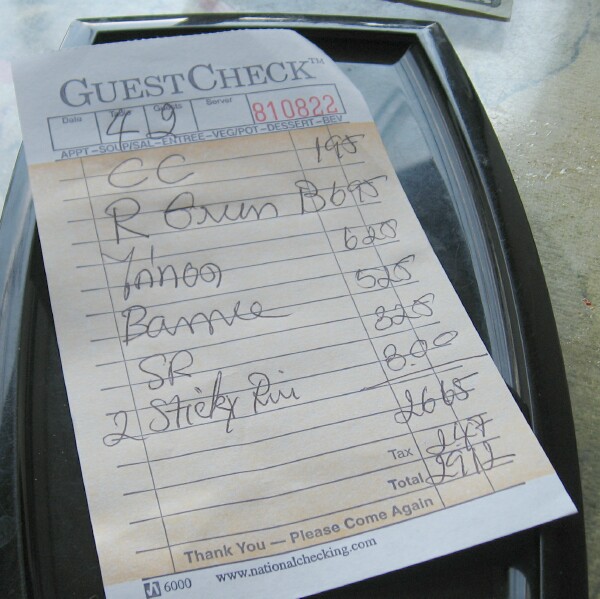 GUESTCHECK™
Date Table Guests Server 810822
4 2
APPT-SOUP/SAL-ENTREE-VEG/POT-DESSERT-BEV
CC 195
R Grun B 695
620
Bamme 525
SR 325
2 Sticky 8.00
2665
Tax 247
Total 2912
Thank You — Please Come Again
6000 www.nationalchecking.com